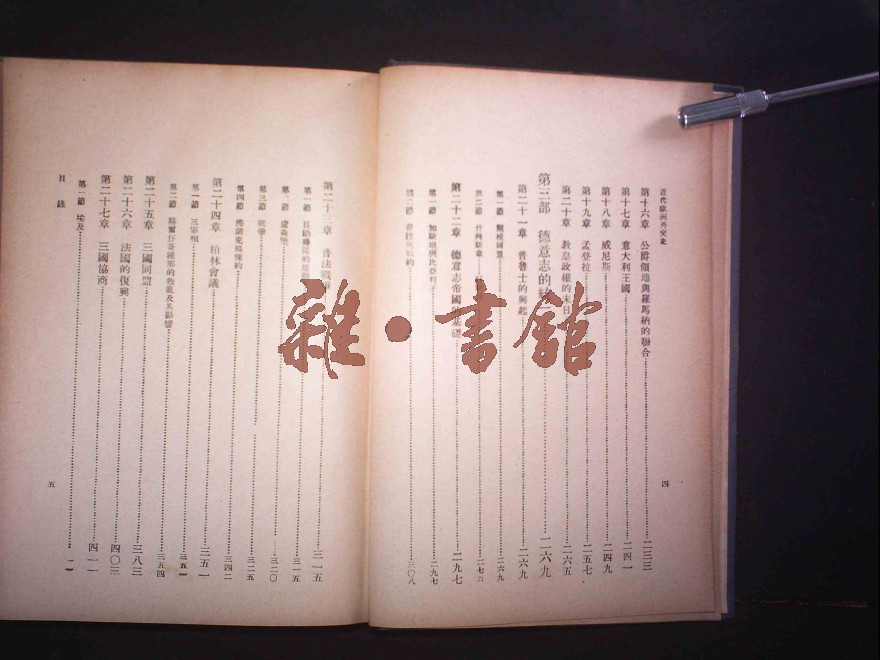 近代歐洲外交史
第十六章 公爵領地與羅馬納的聯合 二三三
第十七章 意大利王國 二四一
第十八章 威尼斯 二四九
第十九章 孟登拉 二五七
第二十章 教皇政權的末日 二六五
第三部 德意志的 二六九
第二十一章 普魯士的興起 二六九
第一節 關稅同盟 二六九
第二節 二七六
第二十二章 德意志帝國 二九七
第一節 二九七
第二節 三〇八
四
第二十三章 普法戰爭 三一五
第一節 三一五
第二節 三二〇
第三節 戰爭 三二五
第四節 佛蘭克福條約 三四二
第二十四章 柏林會議 三五一
第一節 三宰相 三五一
第二節 的叛亂及其影響 三五四
第二十五章 三國同盟 三八三
第二十六章 法國的復興 四〇三
第二十七章 三國協商 四一一
第一節 埃及
目錄
五
雜·書館